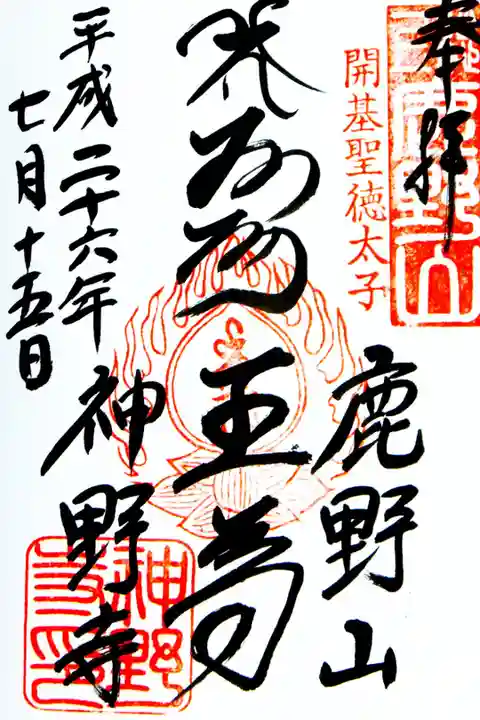 奉拝
開基聖徳太子
鹿野山
王尊
平成二十六年
七月十五日
神野寺
神野
寺印